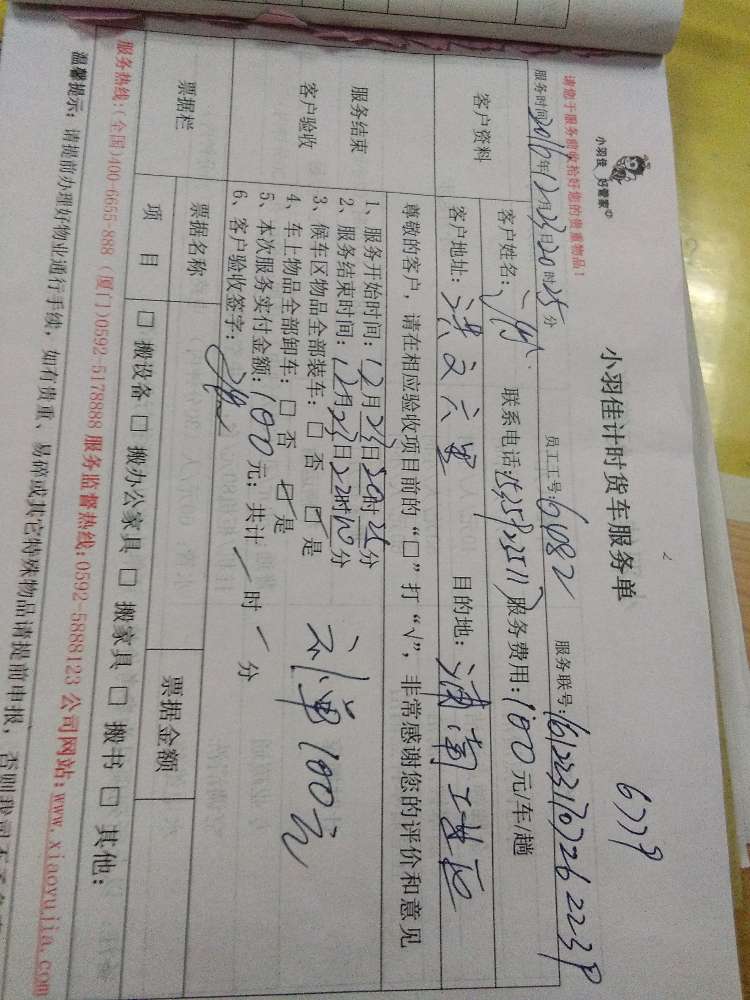 小羽佳 好管家
小羽佳计时货车服务单
6779
请您于服务前收拾好您的贵重物品！
服务时间：2016年12月23日20时25分 员工工号：6082 服务联号：
客户资料
客户姓名： 联系电话： 服务费用：100元/车/趟
客户地址：洪文六里 目的地：湖南工业园
尊敬的客户，请在相应验收项目前的“□”打“√”，非常感谢您的评价和意见
服务结束
客户验收
1、服务开始时间：12月23日20时25分
2、服务结束时间：12月23日22时10分
3、候车区物品全部装车：□ 否 ☑ 是
4、车上物品全部卸车：□ 否 ☑ 是
5、本次服务实付金额：100元；共计 / 时 / 分
6、客户验收签字：
100元
票据栏
票据名称
票据金额
项 目
□ 搬设备 □ 搬办公家具 □ 搬家具 □ 搬书 □ 其他：
服务热线：(全国)400-6655-888 (厦门)0592-5178888 服务监督热线：0592-5888123 公司网站：www.xiaoyujia.com
温馨提示：请提前办理好物业通行手续，如有贵重、易碎或其它特殊物品请提前申报，否则我司不